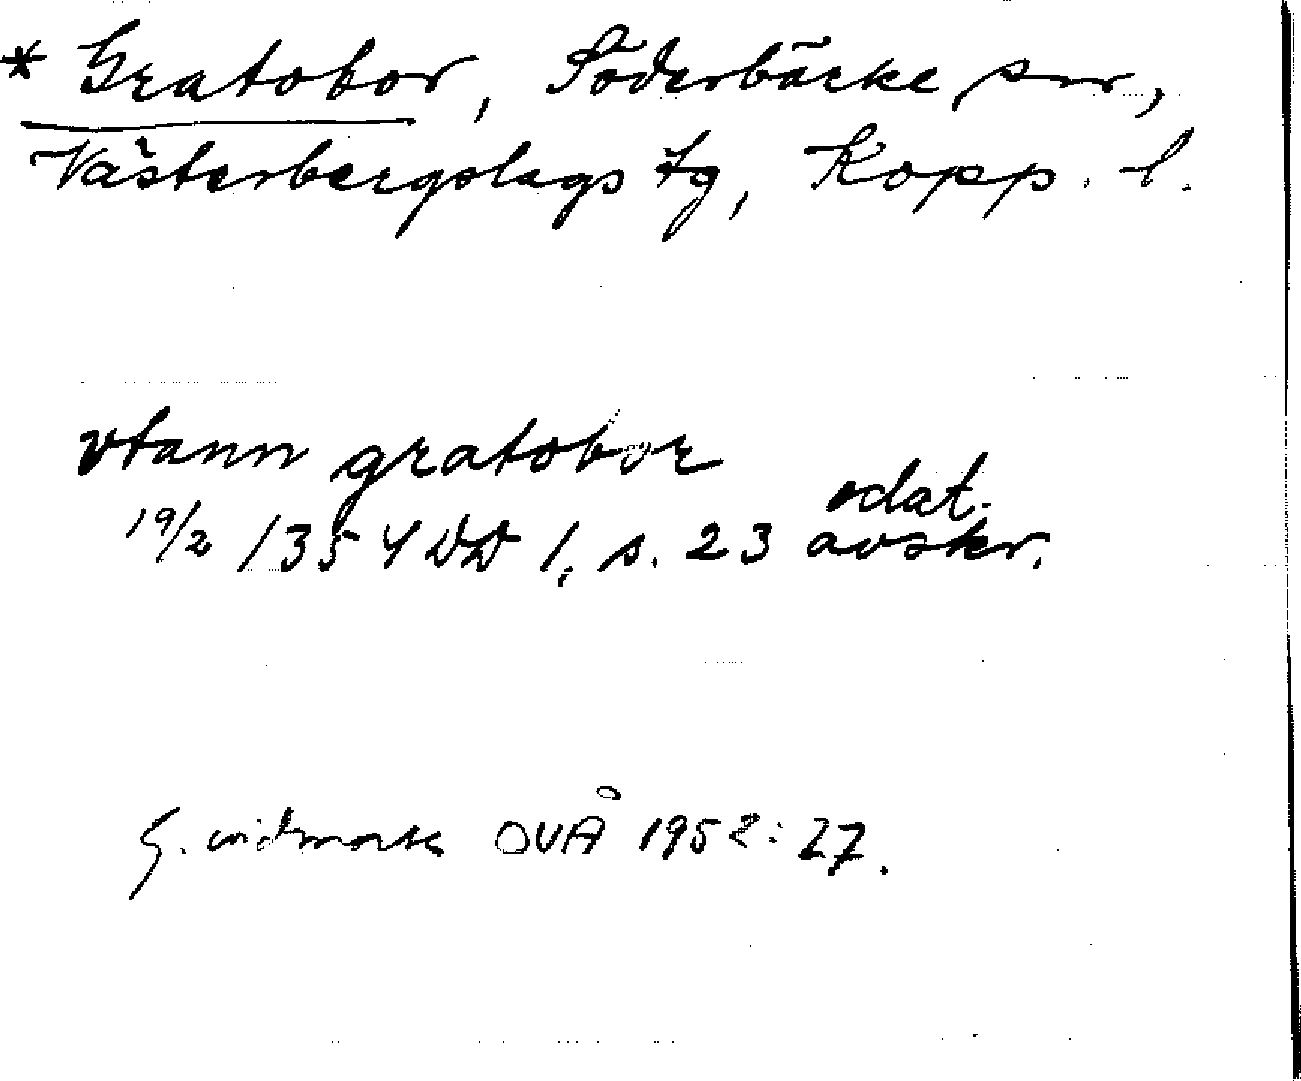 * Gratobor, Söderbärke sn,
Västerbergslags tg, Kopp. l.
vtann gratobor
19/2 1354 DD 1, s. 23 odat. avskr.
G. Widmark OUÅ 1952: 27.